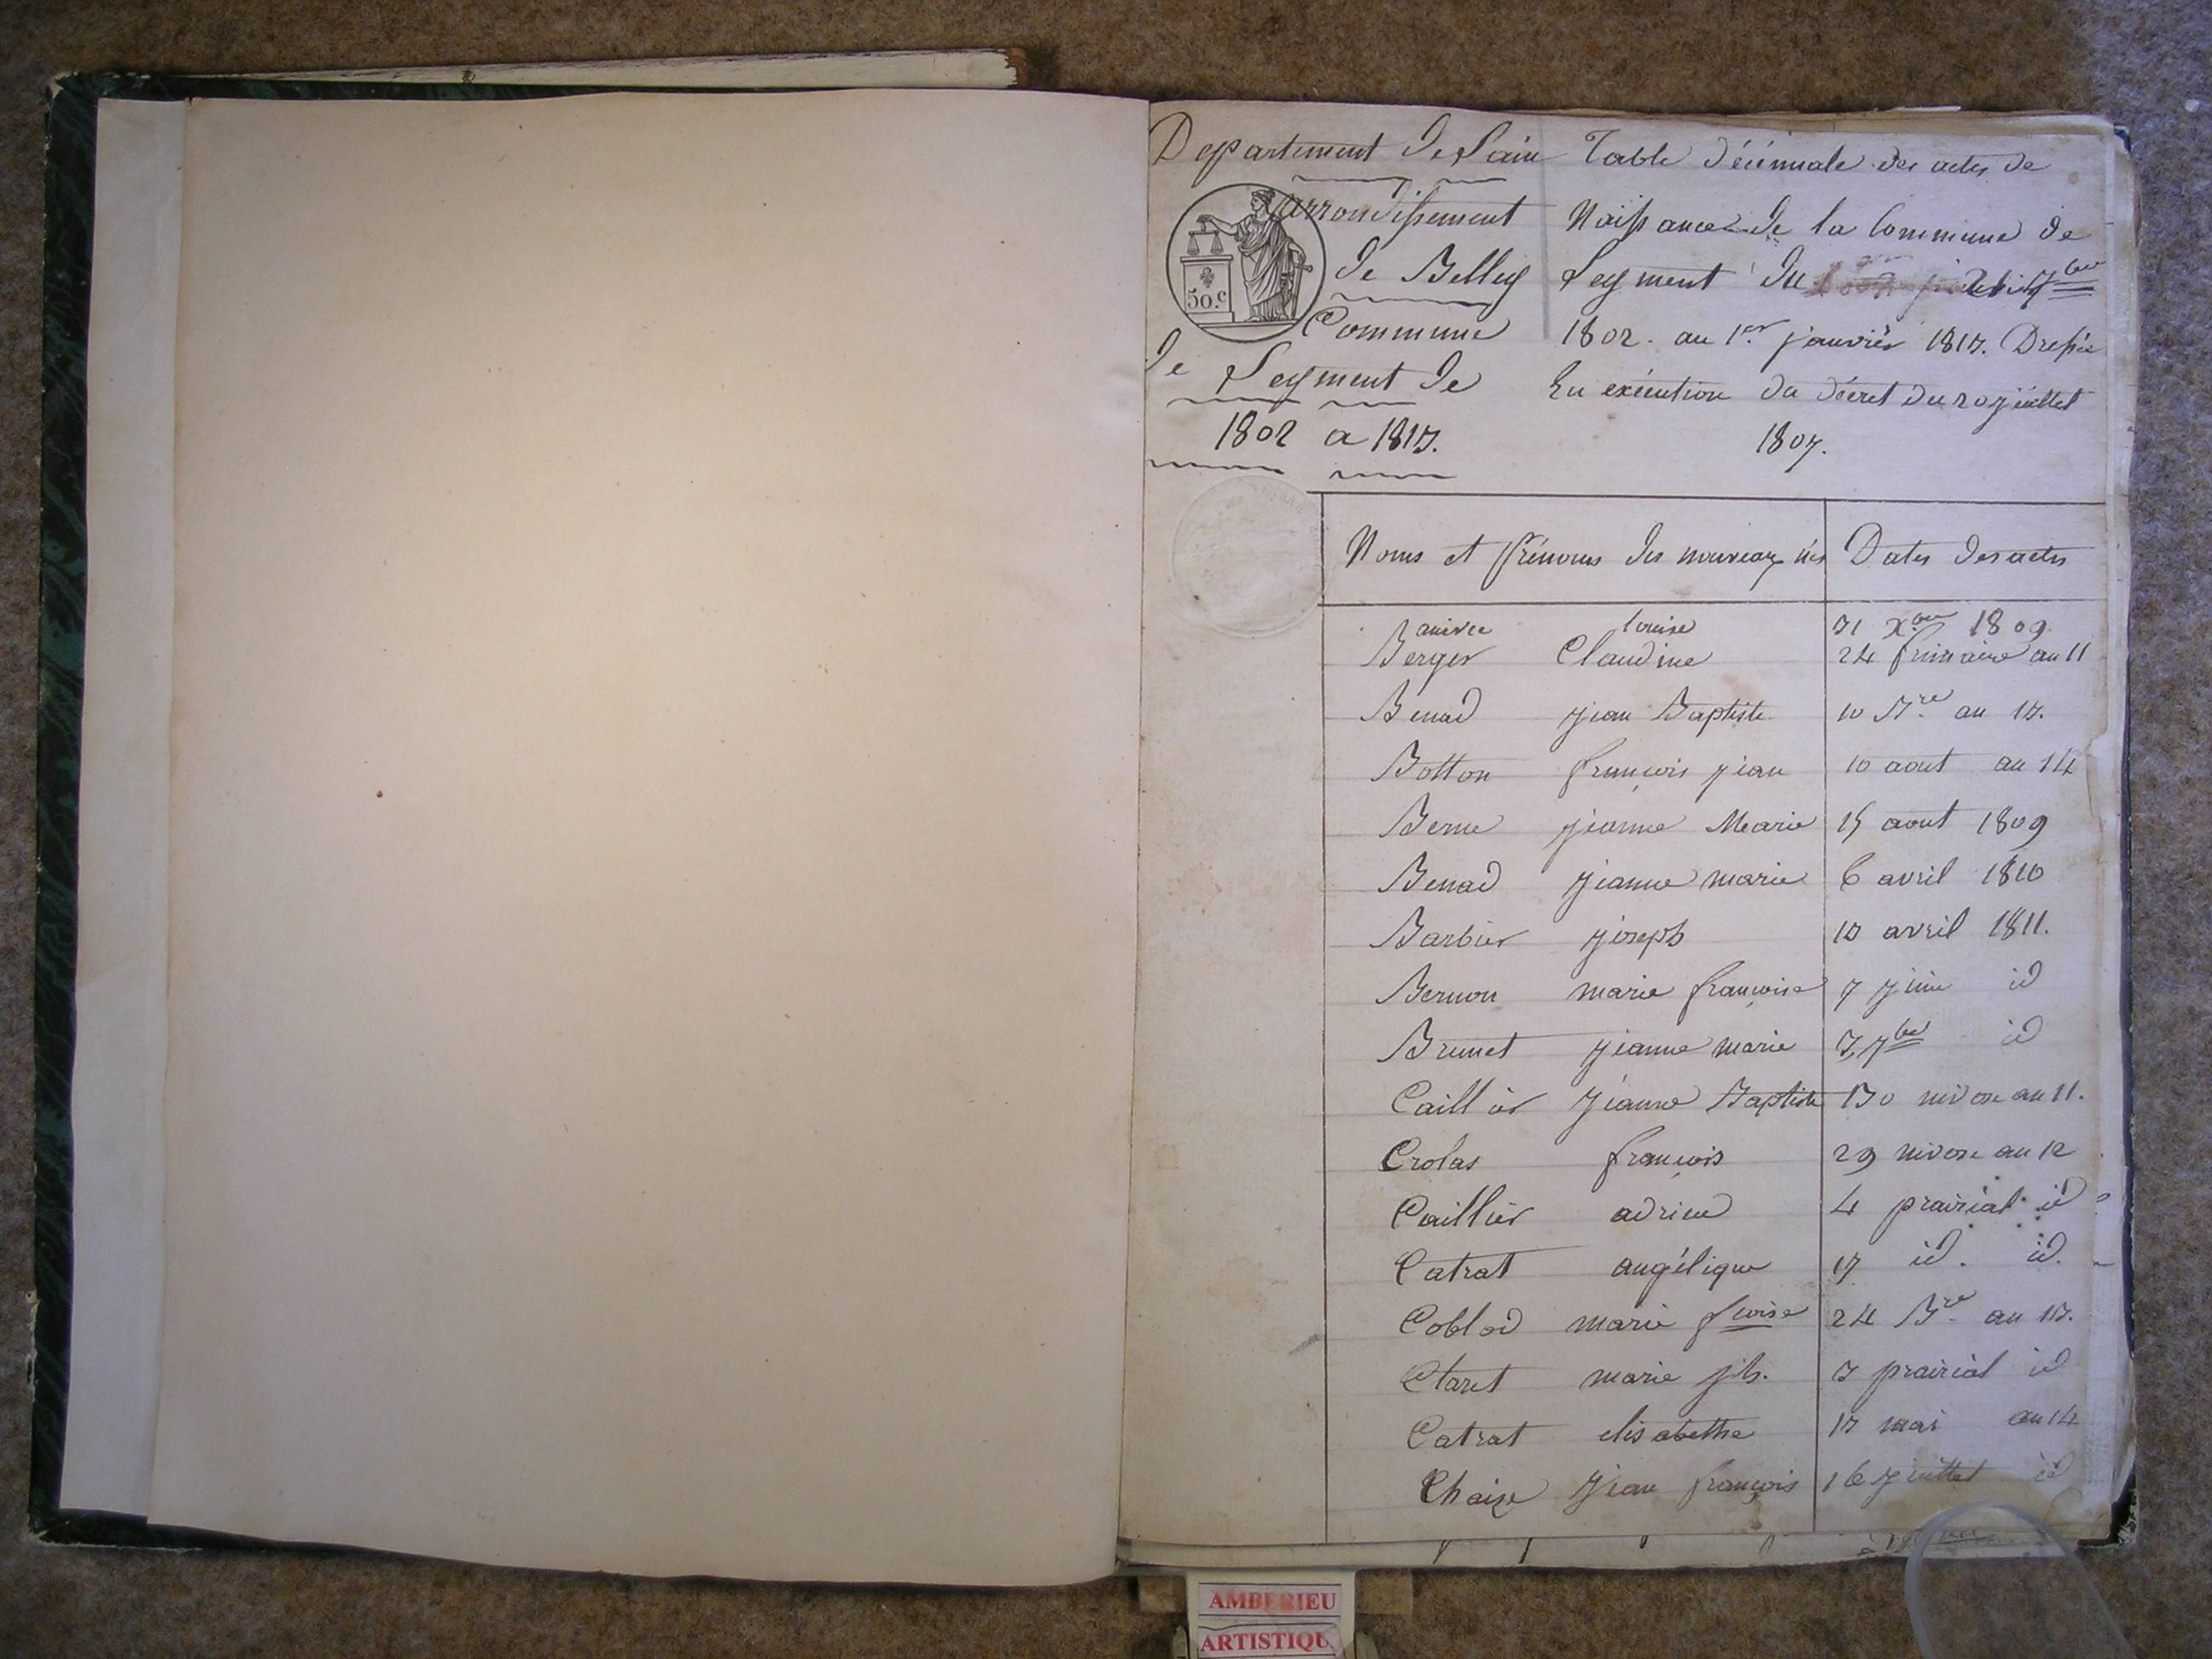 Departement de Lain
arrondissement
de Belley
Commune
de Leyment de
1802 a 1813.
50.c
Table décénnale des actes de
Naissance de la Commune de
Leyment du 7bre
1802. au 1er janvier 1813. Dressée
En exécution du décret du 20 juillet
1807.
Noms et Prénoms des nouveaux nés Dates des actes
louise 31 Xbre 1809
Berger Claudine 24 frimaire an 11
Benad jean Baptiste 10 Bre an 13.
Botton françois jean 10 aout an 14
Berne jeanne Marie 15 aout 1809
Benad jeanne marie 6 avril 1810
Barbier joseph 10 avril 1811.
Bernon marie françoise 7 juin id
Brunet jeanne marie 3, 7bre id
Caillier jeanne Baptiste 30 nivose an 11.
Crolas françois 29 nivose an 12
Caillier adrien 4 prairial id
Catrat angélique 17 id. id.
Coblod marie fcoise 24 Bre an 13.
Claret marie jh. 3 prairial id
Catrat elisabethe 13 mai an 14
Chaize jean françois 16 juillet id
AMBERIEU
ARTISTIQU